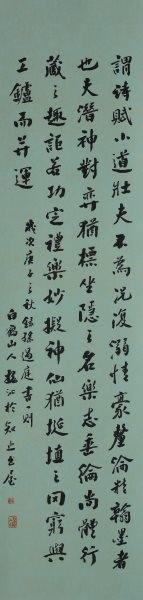 謂詩賦小道壯夫不為況復溺情豪釐淪精翰墨者
也夫潛神對弈猶標坐隱之名樂志垂綸尚體行
藏之趣詎若功定禮樂妙擬神仙猶挻埴之罔窮與
工鑪而并運
歲次庚子之秋錄孫過庭書一則
白鶴山人